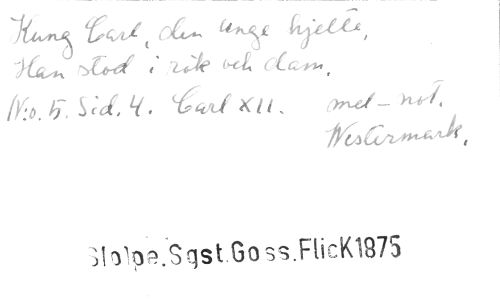 Kung Carl, den unge hjelte,
Han stod i rök och dam.
N:o. 5. Sid. 4. Carl XII. mel-not.
Westermark.
Stolpe.Sgst.Goss.FlicK1875